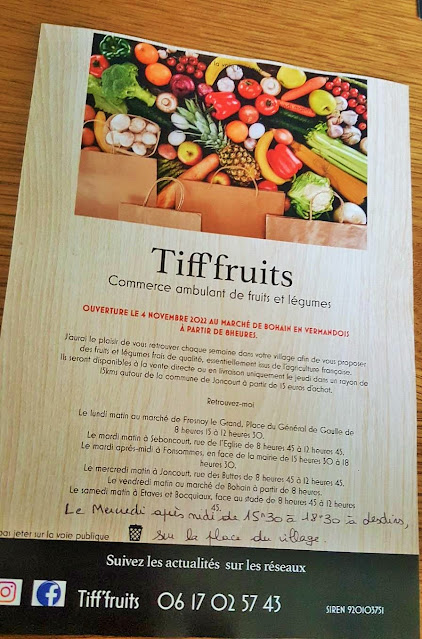 Tiff'fruits
Commerce ambulant de fruits et légumes
OUVERTURE LE 4 NOVEMBRE 2022 AU MARCHÉ DE BOHAIN EN VERMANDOIS
À PARTIR DE 8HEURES.
J'aurai le plaisir de vous retrouver chaque semaine dans votre village afin de vous proposer
des fruits et légumes frais de qualité, essentiellement issus de l'agriculture française.
Ils seront disponibles à la vente directe ou en livraison uniquement le jeudi dans un rayon de
15kms autour de la commune de Joncourt à partir de 15 euros d'achat.
Retrouvez-moi
Le lundi matin au marché de Fresnoy le Grand, Place du Général de Gaulle de
8 heures 15 à 12 heures 30.
Le mardi matin à Seboncourt, rue de l'Eglise de 8 heures 45 à 12 heures 45.
Le mardi après-midi à Fonsommes, en face de la mairie de 15 heures 30 à 18
heures 30.
Le mercredi matin à Joncourt, rue des Buttes de 8 heures 45 à 12 heures 45.
Le vendredi matin au marché de Bohain à partir de 8 heures.
Le samedi matin à Etaves et Bocquiaux, face au stade de 8 heures 45 à 12 heures
45.
Le Mercredi après midi de 15h30 à 18h30 à Lesdins,
sur la place du village.
pas jeter sur la voie publique
Suivez les actualités sur les réseaux
Tiff'fruits 06 17 02 57 43
SIREN 920103751